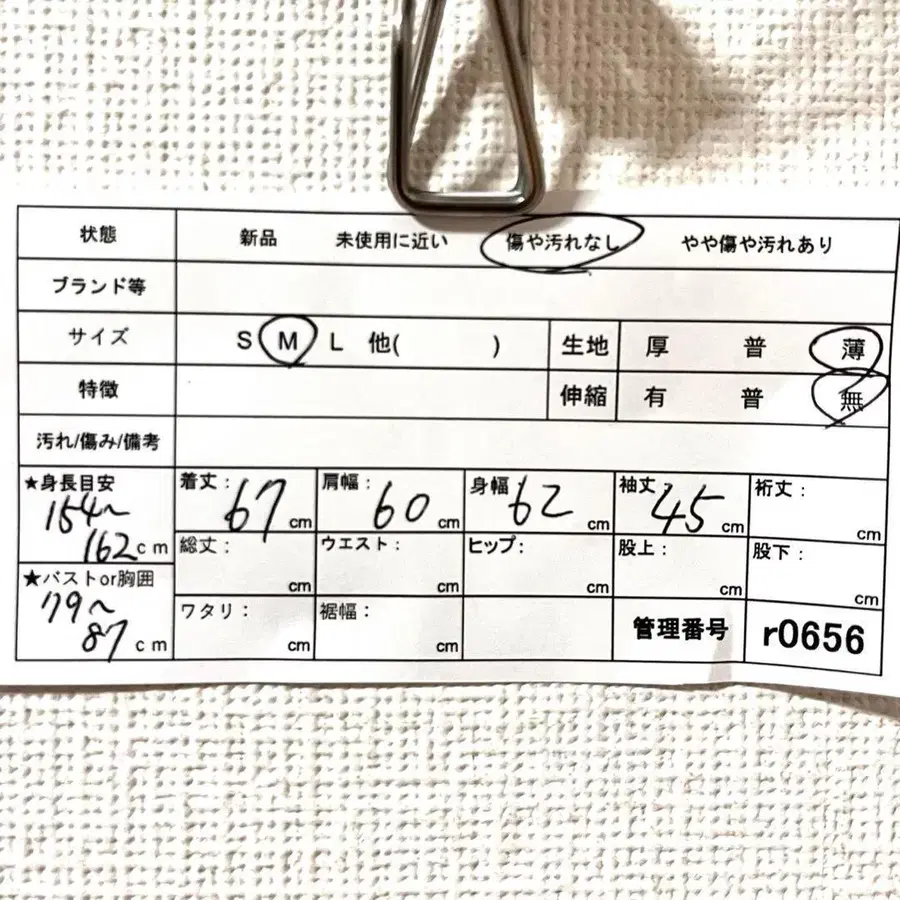 状態 新品 未使用に近い 傷や汚れなし やや傷や汚れあり
ブランド等
サイズ S M L 他( ) 生地 厚 普 薄
特徴 伸縮 有 普 無
汚れ/傷み/備考
★身長目安 154~162cm 着丈: 67cm 肩幅: 60cm 身幅 62cm 袖丈: 45cm 裄丈: cm
総丈: cm ウエスト: cm ヒップ: cm 股上: cm 股下: cm
★バストor胸囲 79~87cm ワタリ: cm 裾幅: cm 管理番号 r0656